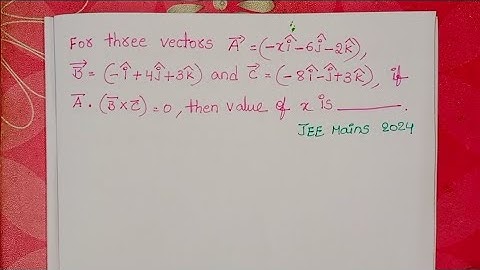 For three vectors A⃗ = (-xî-6ĵ-2k̂),
B⃗ = (-î+4ĵ+3k̂) and C⃗ = (-8î-ĵ+3k̂), if
A⃗ · (B⃗×C⃗) = 0, then value of x is ______.
JEE Mains 2024